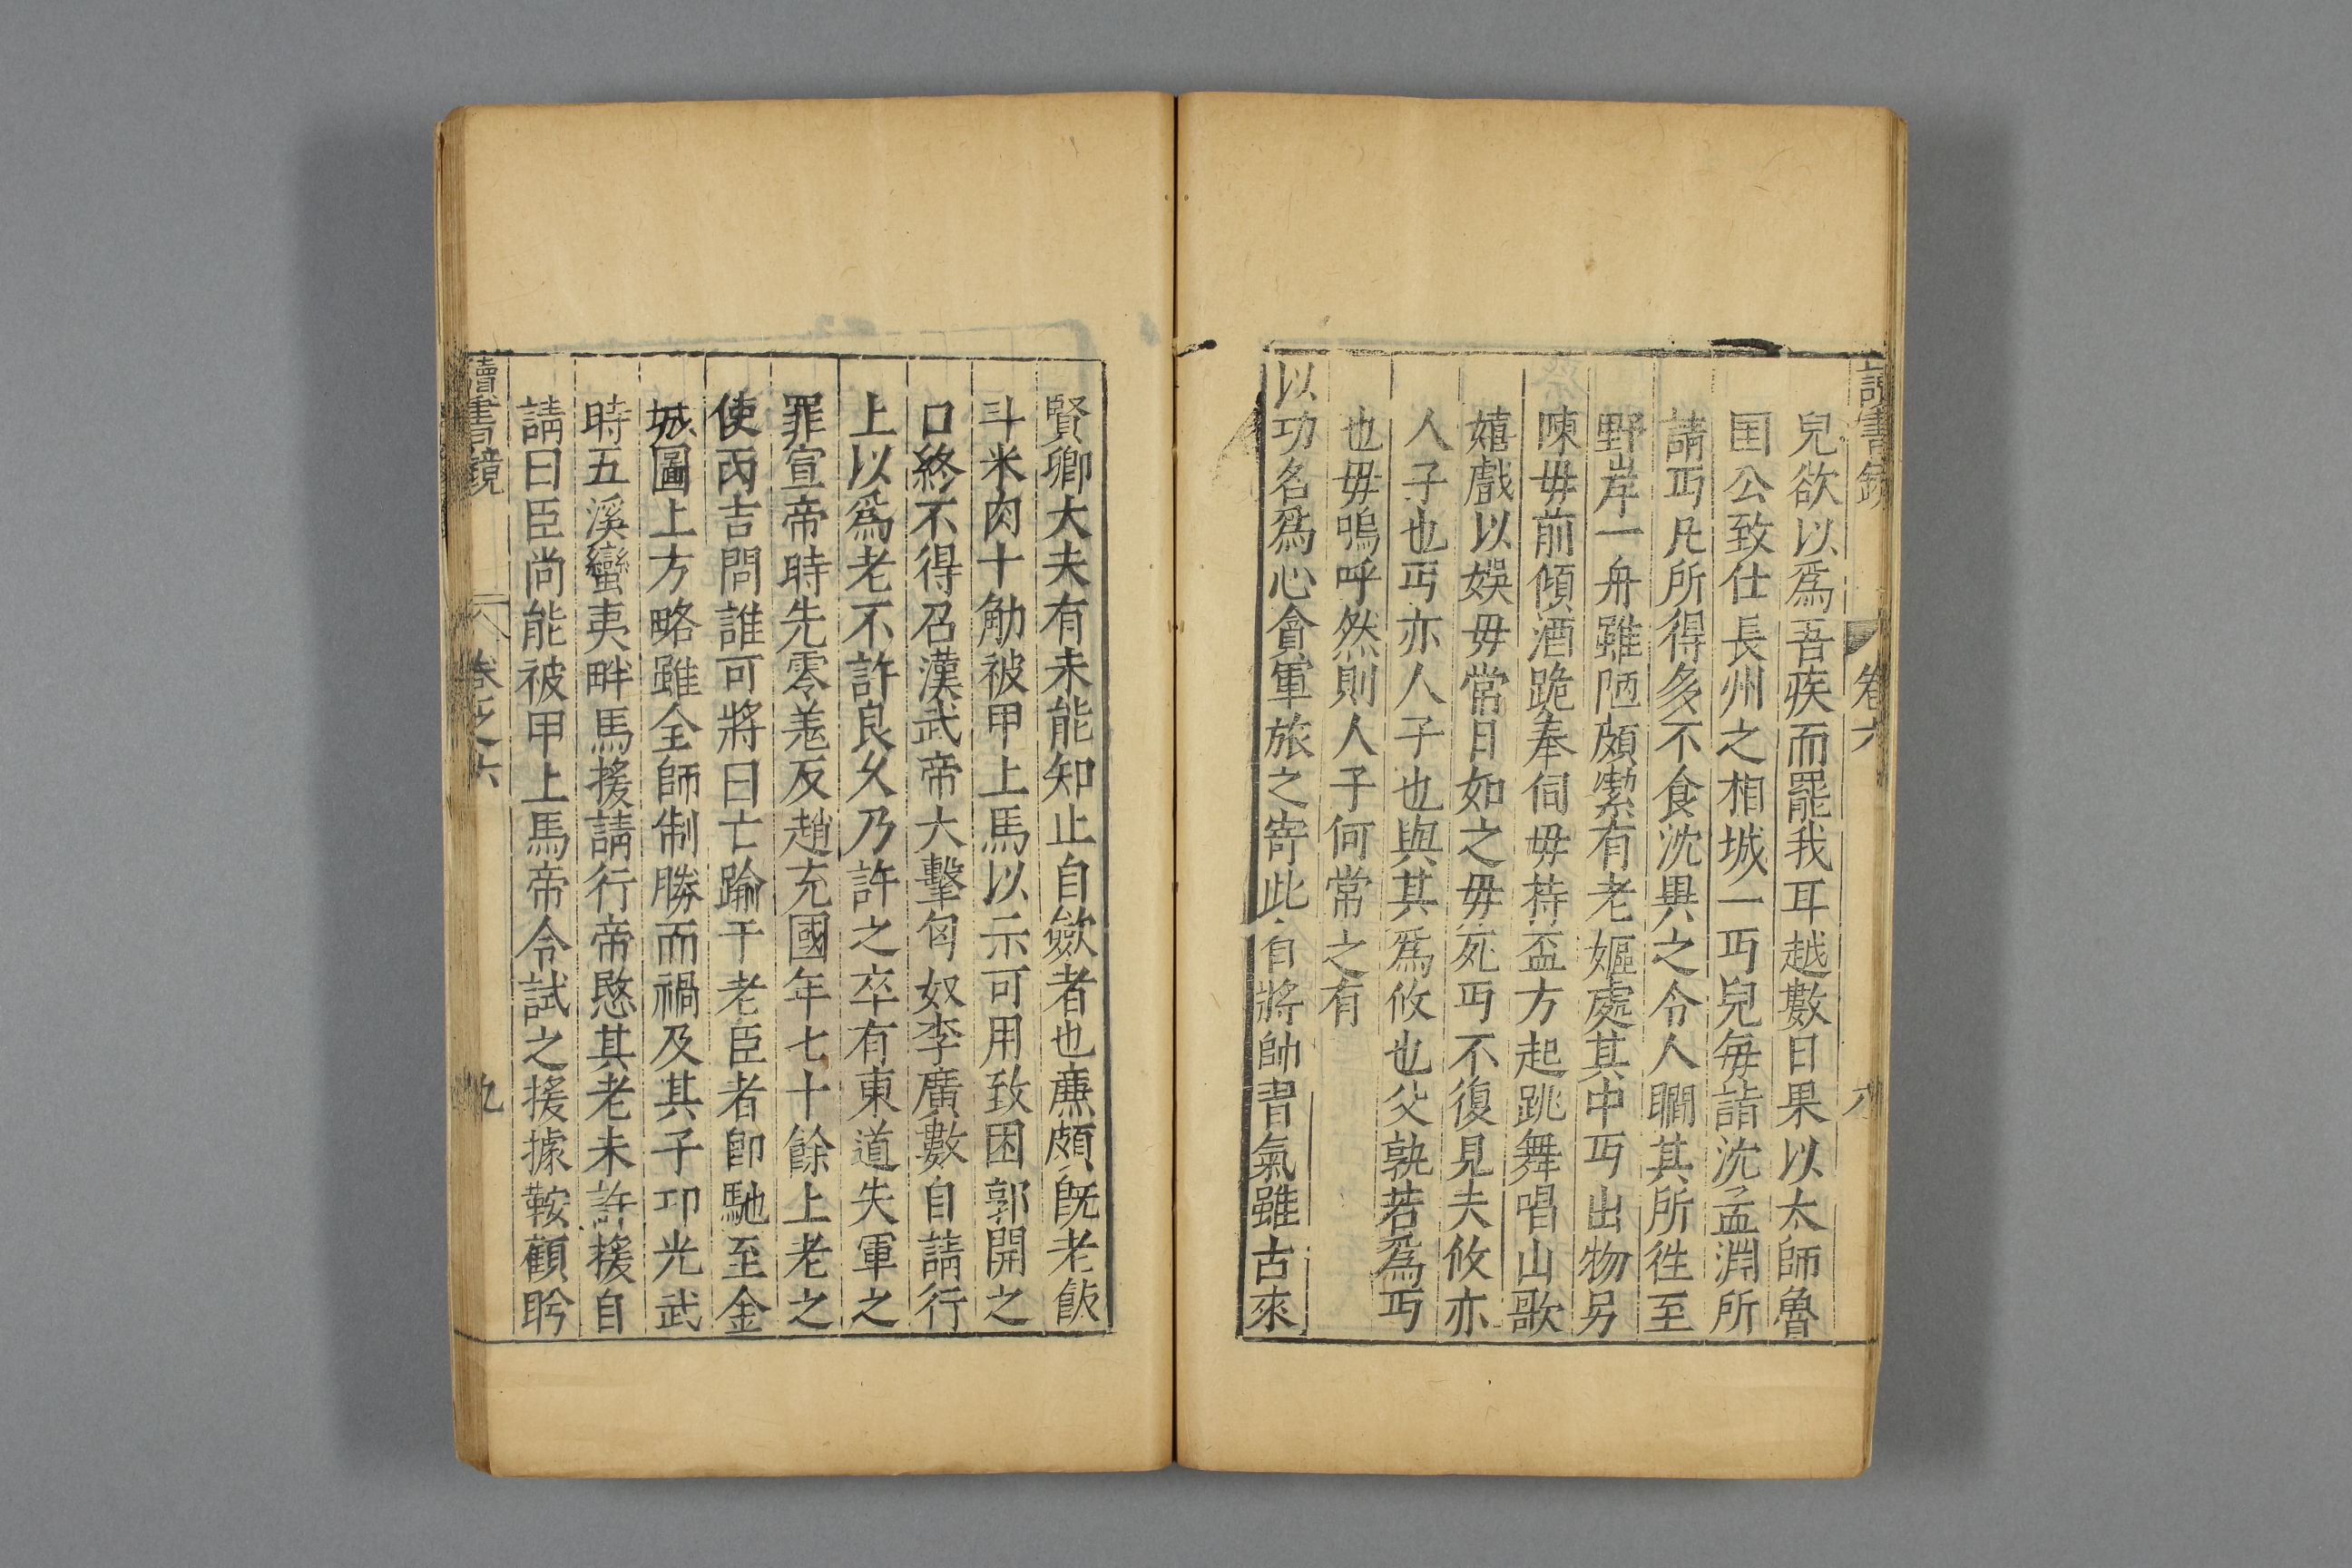 讀書鏡 卷六 八
兒欲以爲吾疾而罷我耳越數日果以太師魯
国公致仕長州之相城一丐兒每詣沈孟淵所
請丐凡所得多不食沈異之令人瞷其所徃至
野岸一舟雖陋頗潔有老嫗處其中丐出物另
陳毋前傾酒跪奉伺毋持盃方起跳舞唱山歌
嬉戲以娛毋常日如之毋死丐不復見夫攸亦
人子也丐亦人子也與其爲攸也父孰若爲丐
也毋嗚呼然則人子何常之有
以功名爲心貪軍旅之寄此自將帥習氣雖古來
賢卿大夫有未能知止自歛者也廉頗旣老飯
斗米肉十觔被甲上馬以示可用致困郭開之
口終不得召漢武帝大擊匈奴李廣數自請行
上以爲老不許良乆乃許之卒有東道失軍之
罪宣帝時先零羗反趙充國年七十餘上老之
使丙吉問誰可將曰亡踰于老臣者卽馳至金
城圖上方略雖全師制勝而禍及其子卬光武
時五溪蠻夷畔馬援請行帝愍其老未許援自
請曰臣尚能被甲上馬帝令試之援據鞍顧盻
讀書鏡 卷之六 九